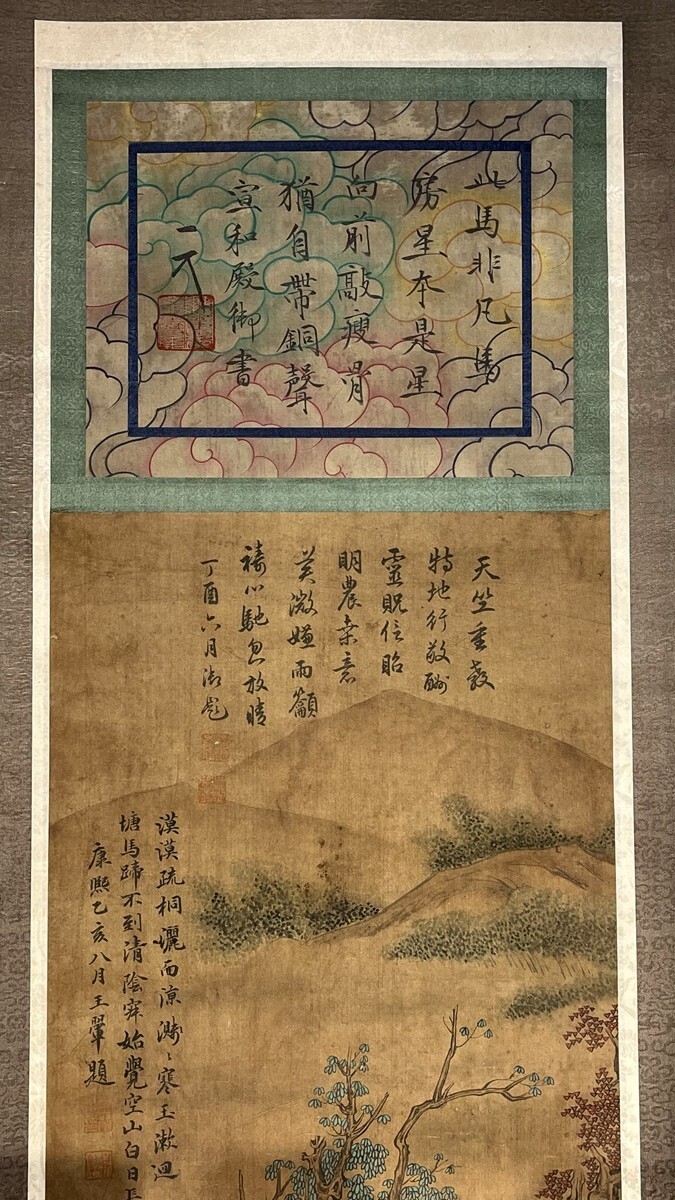 此馬非凡馬
房星本是星
向前敲瘦骨
猶自帶銅聲
宣和殿御書
天竺重教
特地行敬酬
靈貺佐昭
明農桒意
莫激嫌而籲
禱心馳忽放晴
丁酉六月御題
漠漠疏桐灑面涼濺濺寒玉漱迴
塘馬蹄不到清陰寂始覺空山白日長
康熙乙亥八月王翬題